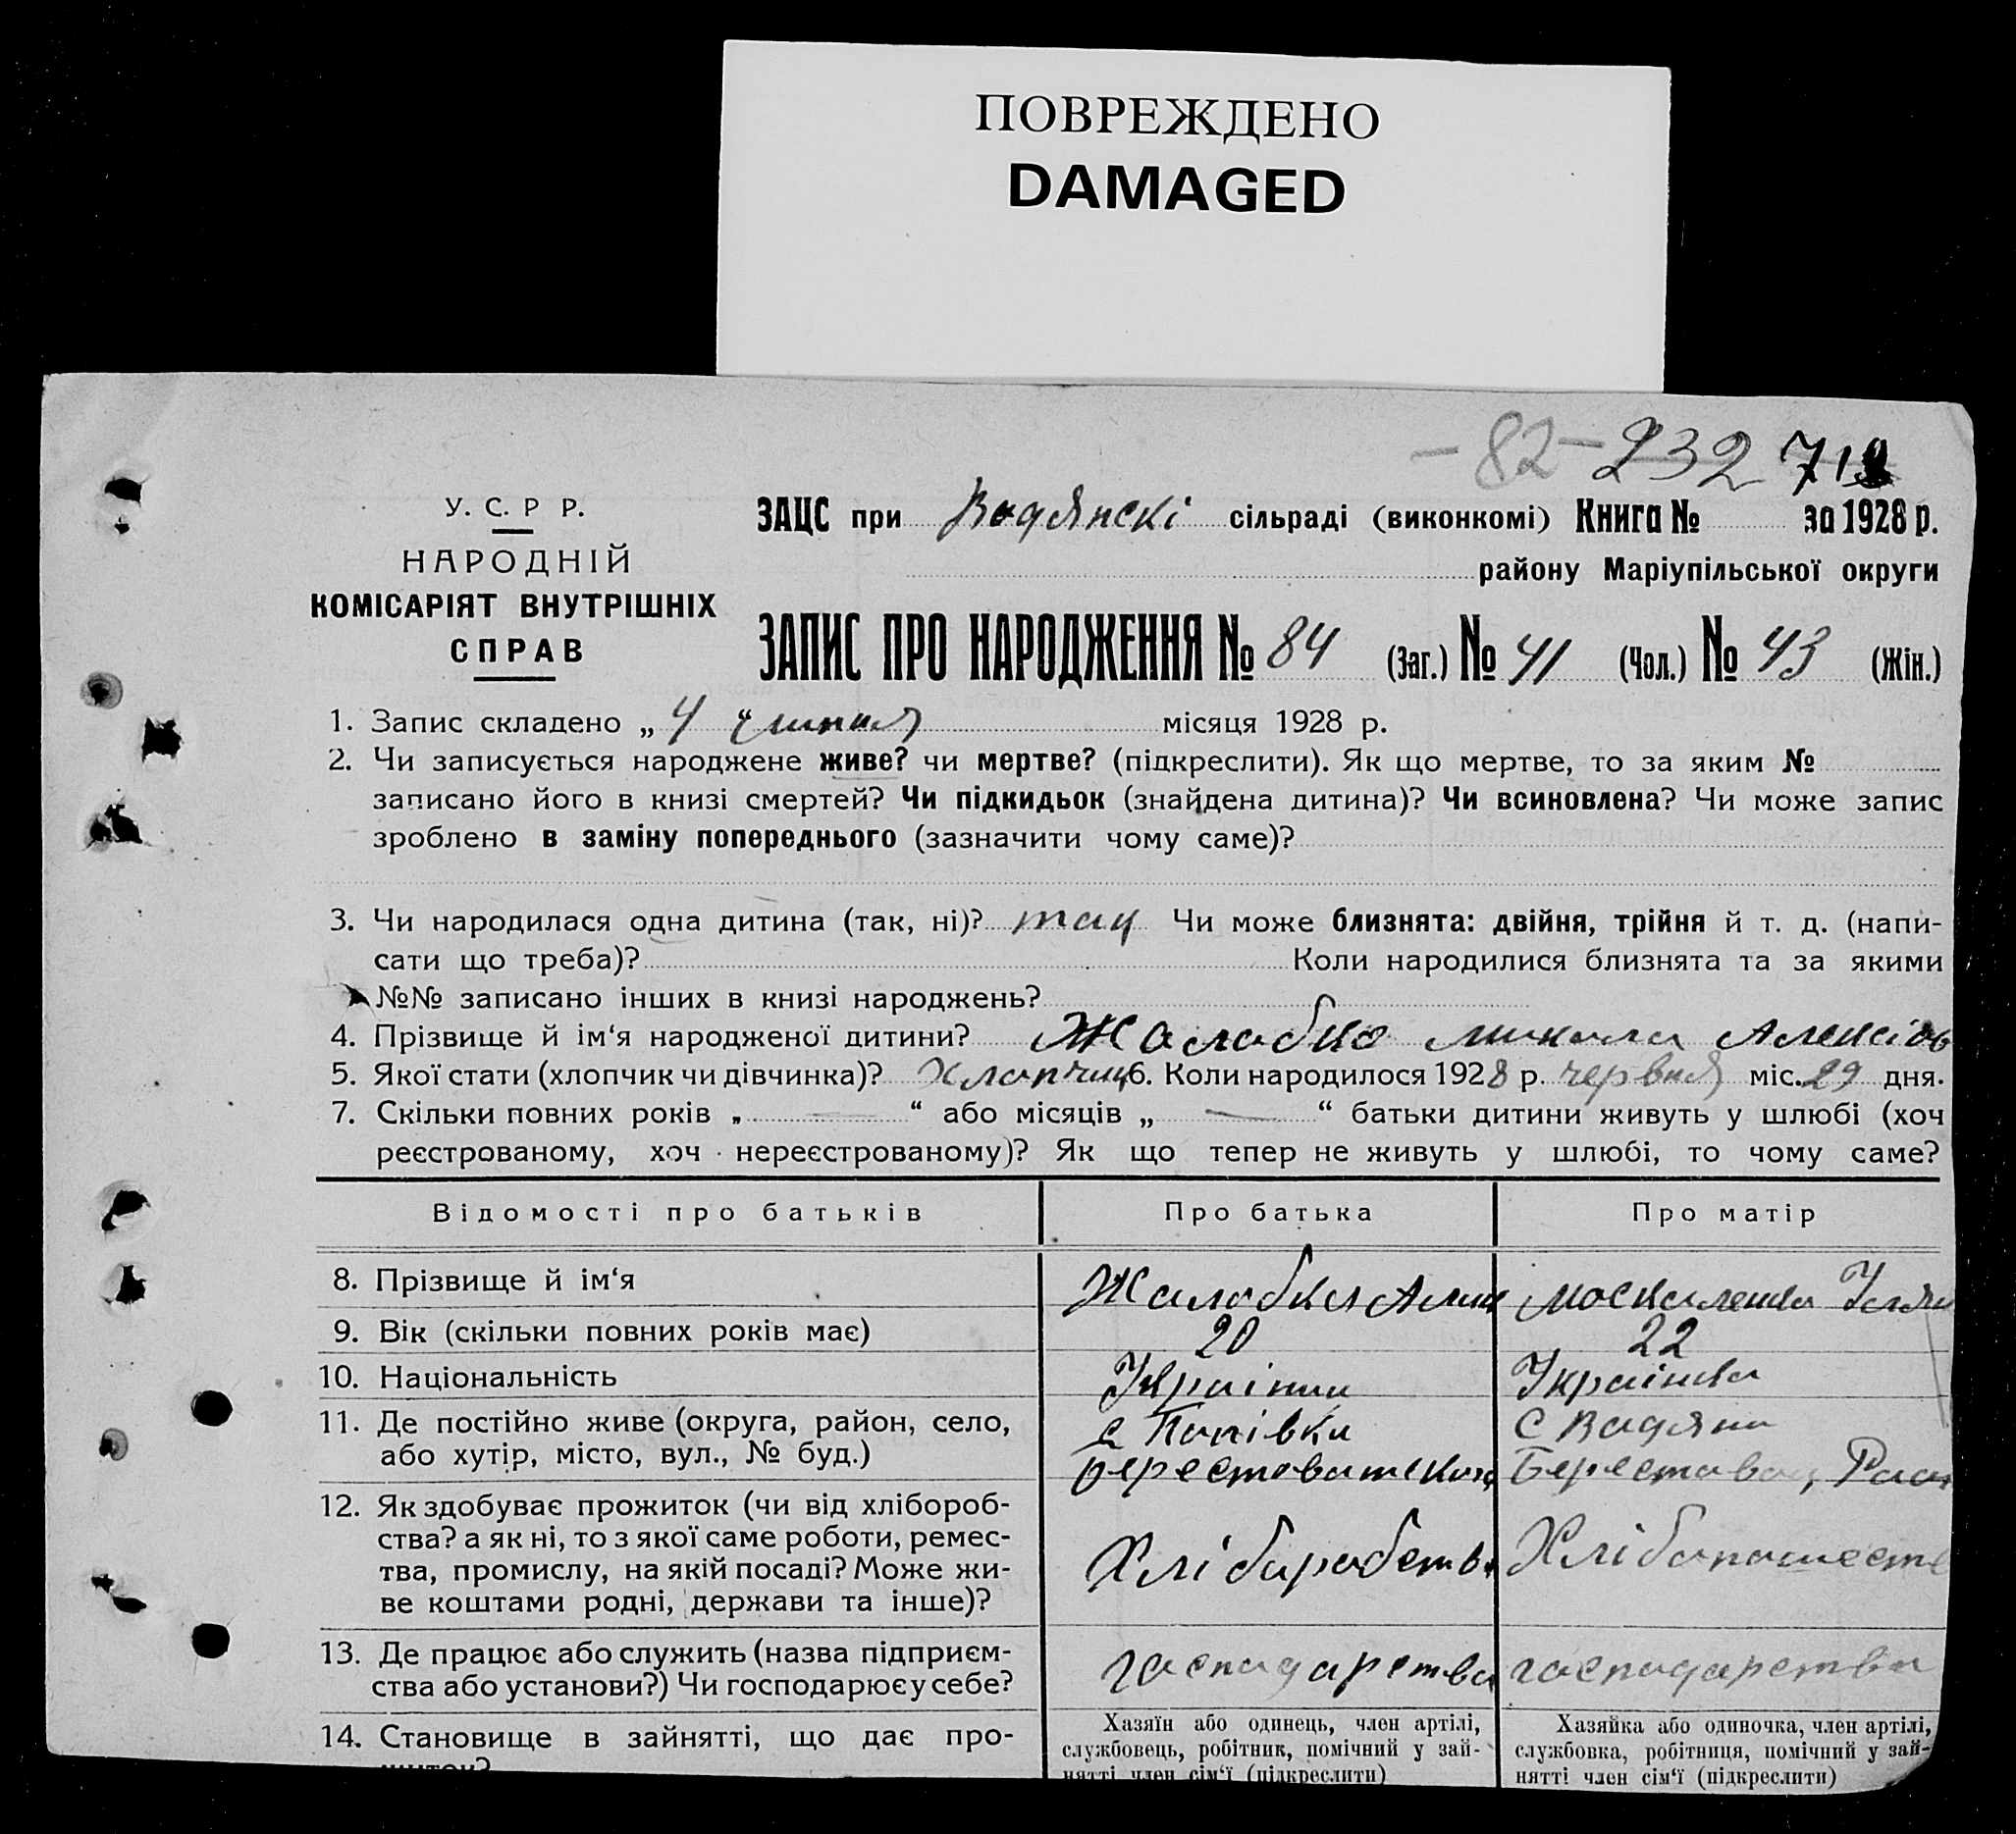 ПОВРЕЖДЕНО
DAMAGED
— 82 — 232 71
У. С. Р Р.
НАРОДНІЙ
КОМІСАРІЯТ ВНУТРІШНІХ
СПРАВ
ЗАЦС при Водянскі сільраді (виконкомі) Книга № за 1928 р.
району Маріупільської округи
ЗАПИС ПРО НАРОДЖЕННЯ № 84 (Заг.) № 41 (Чол.) № 43 (Жін.)
1. Запис складено „ 4 “ місяця 1928 р.
2. Чи записується народжене живе? чи мертве? (підкреслити). Як що мертве, то за яким №
записано його в книзі смертей? Чи підкидьок (знайдена дитина)? Чи всиновлена? Чи може запис
зроблено в заміну попереднього (зазначити чому саме)?
3. Чи народилася одна дитина (так, ні)? так Чи може близнята: двійня, трійня й т. д. (напи-
сати що треба)? Коли народилися близнята та за якими
№№ записано інших в книзі народжень?
4. Прізвище й ім‘я народженої дитини? Жалобко микола
5. Якої стати (хлопчик чи дівчинка)? Хлапчиц 6. Коли народилося 1928 р. червня міс. 29 дня.
7. Скільки повних років „ — “ або місяців „ — “ батьки дитини живуть у шлюбі (хоч
реєстрованому, хоч нереєстрованому)? Як що тепер не живуть у шлюбі, то чому саме?
Відомості про батьків Про батька Про матір
8. Прізвище й ім‘я Жалобка москаленка
9. Вік (скільки повних років має) 20 22
10. Національність Українец Українка
11. Де постійно живе (округа, район, село, с Попівка с Водяна
або хутір, місто, вул., № буд.)
12. Як здобуває прожиток (чи від хлібороб-
ства? а як ні, то з якої саме роботи, ремес-
тва, промислу, на якій посаді? Може жи- Хлібаробств
ве коштами родні, держави та інше)?
13. Де працює або служить (назва підприєм- гаспадарства гаспадарства
ства або установи?) Чи господарює у себе?
14. Становище в зайнятті, що дає про- Хазяїн або одинець, член артілі, Хазяйка або одиночка, член артілі,
службовець, робітник, помічний у зай- службовка, робітниця, помічний у зай-
нятті член сім‘ї (підкреслити) нятті член сім‘ї (підкреслити)